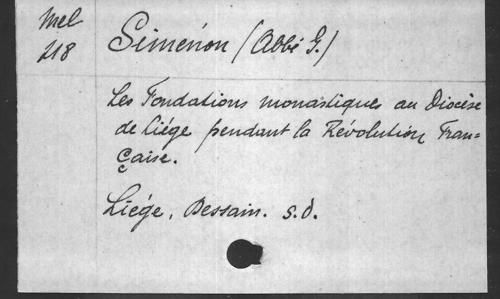 Mel
218
Siménon (Abbé G.)
Les Fondations monastiques au Diocèse
de Liége pendant la Révolution Fran=
çaise.
Liége, Dessain. s.d.